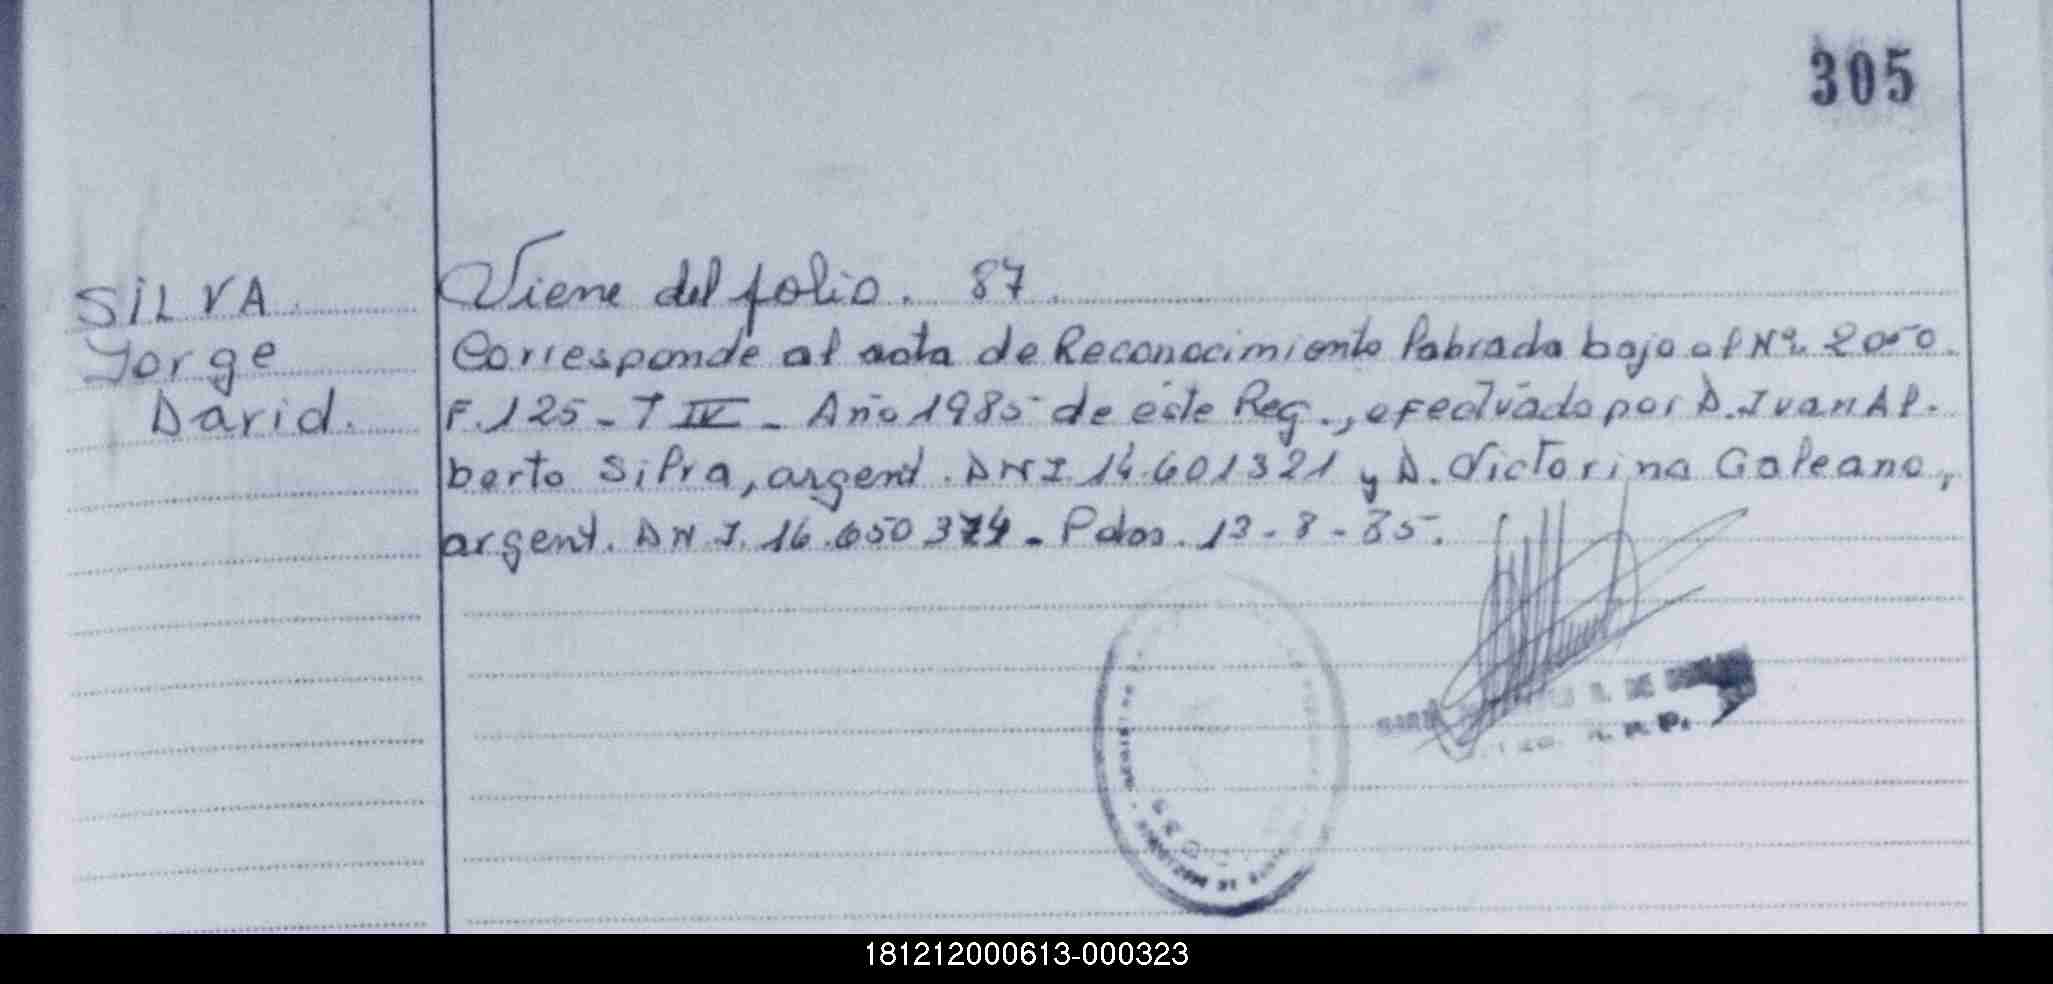 305
SILVA
Jorge
David.
Viene del folio. 87.
Corresponde al acta de Reconocimiento labrada bajo el Nº 2050.
F. 125 - T IV - Año 1985 de este Reg., efectuado por D. Juan Al-
berto Silva, argent. DNI. 14.601321 y D. Victorina Galeano,
argent. DNI. 16.650 374 - Pdas. 13-8-85.
181212000613-000323